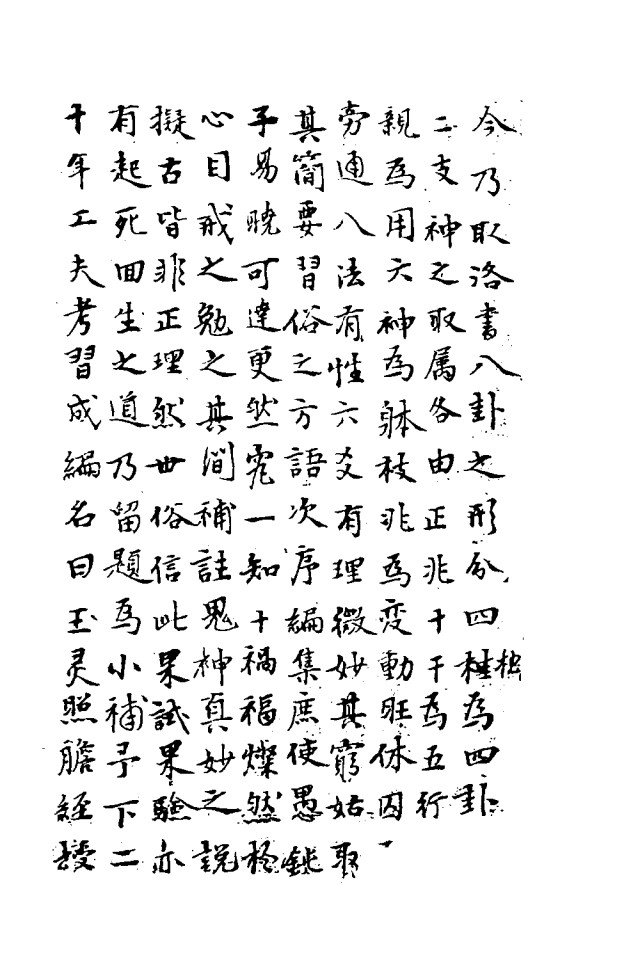 今乃取洛書八卦之形分四柱為四卦
二支神之取属各由正兆十干為五行
親為用六神為躰枝兆為变動旺休囚
旁通八法有性六爻有理微妙其窮姑取
其簡要習俗之方語次序編集庶使愚鈍
子易曉可達更然究一知十禍福燦然於
心目戒之勉之其間補註鬼神真妙之說
擬古皆非正理然世俗信此果試果驗亦
有起死回生之道乃留題為小補予下二
十年工夫考習成編名曰玉灵照膽経